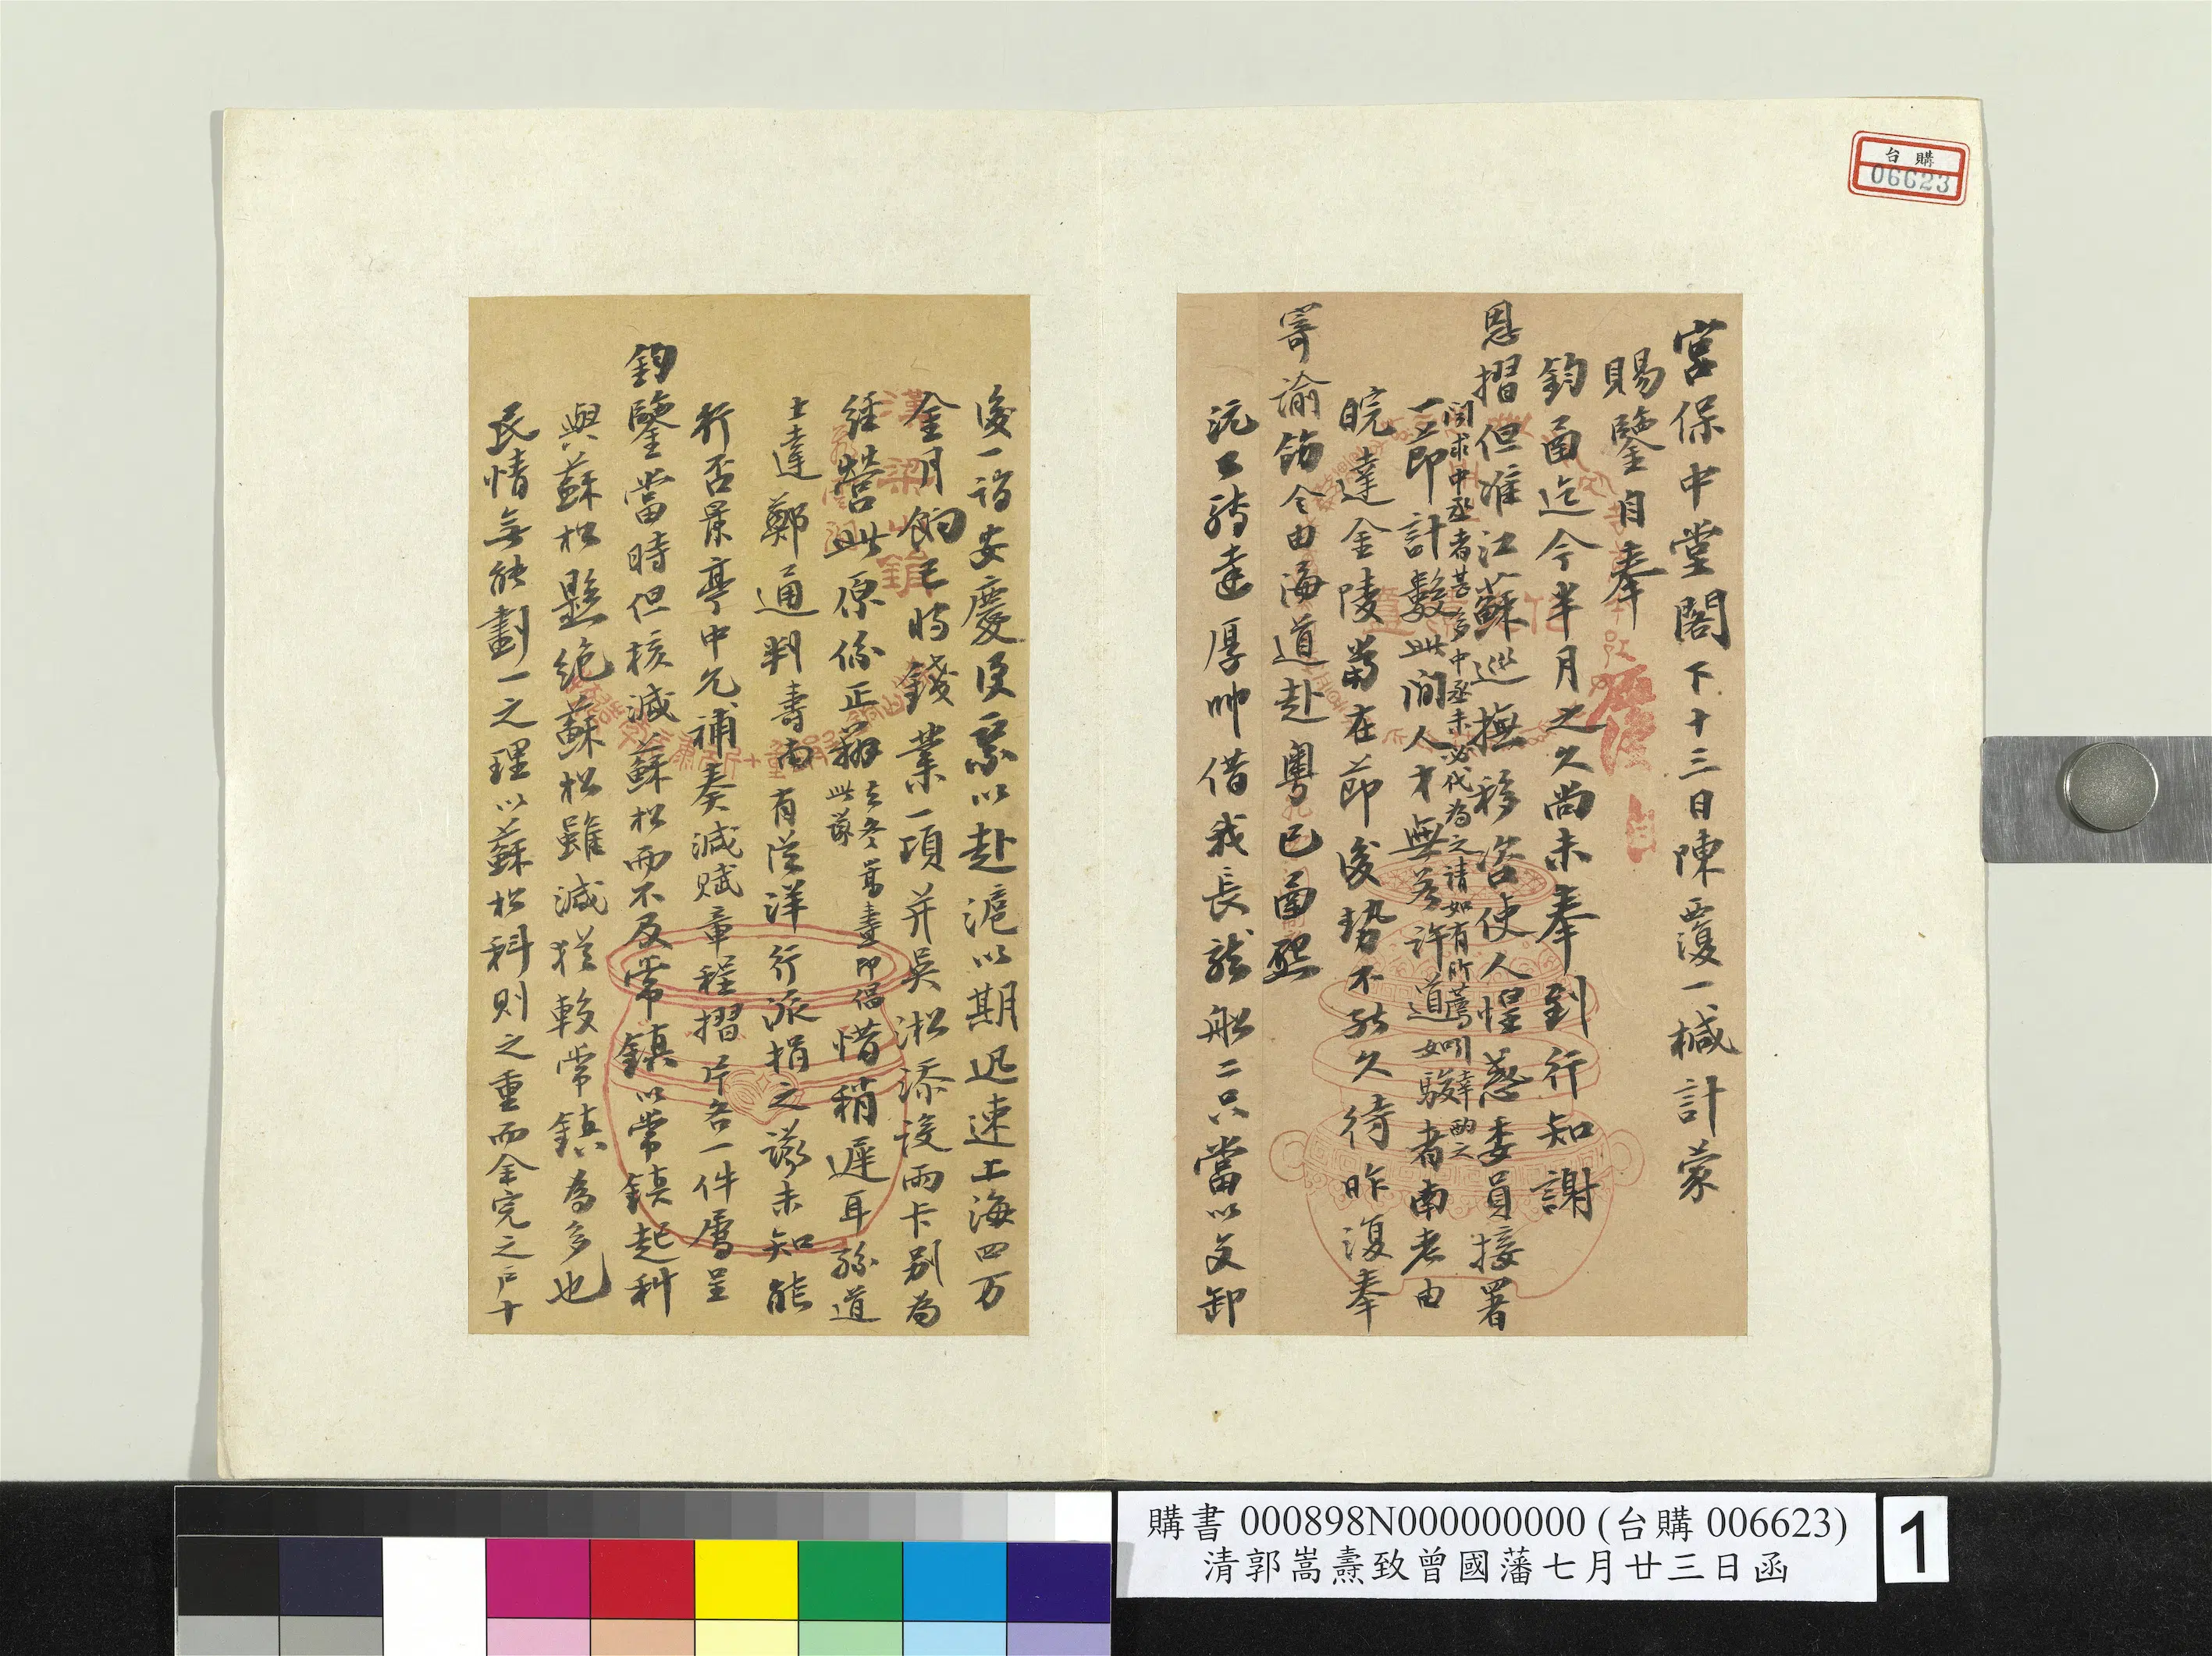 台購
06623
宮保中堂閣下十三日陳覆一椷計蒙
賜鑒自奉
鈞函迄今半月之久尚未奉到行知謝
恩摺但准江蘇巡撫移咨使人惶惑委員接署
一節計數此間人才無若許道如駿者南老由
聞求中丞者甚多中丞未必代為之請如有所薦引幸酌之
皖達金陵當在節後勢不能久待昨復奉
寄諭飭令由海道赴粵已函懇
沅公轉達厚帥借我長龍船二只當以交卸
後一詣安慶便案以赴滬以期迅速上海四万
金月餉已將錢業一項并吳淞添設兩卡別為
經營此原係正辦
去冬篤畫即倡
此議
惜稍遲耳孫道
士達鄭通判壽南有從洋行派捐之議未知能
行否景亭中允補奏減賦章程摺片各一件屬呈
鈞鑒當時但核減蘇松而不及常鎮以常鎮起科
與蘇松懸絕蘇松雖減猶較常鎮為多也
民情無能劃一之理以蘇松科則之重而全完之戶十
購書 000898N000000000 (台購 006623)
清郭嵩燾致曾國藩七月廿三日函
1